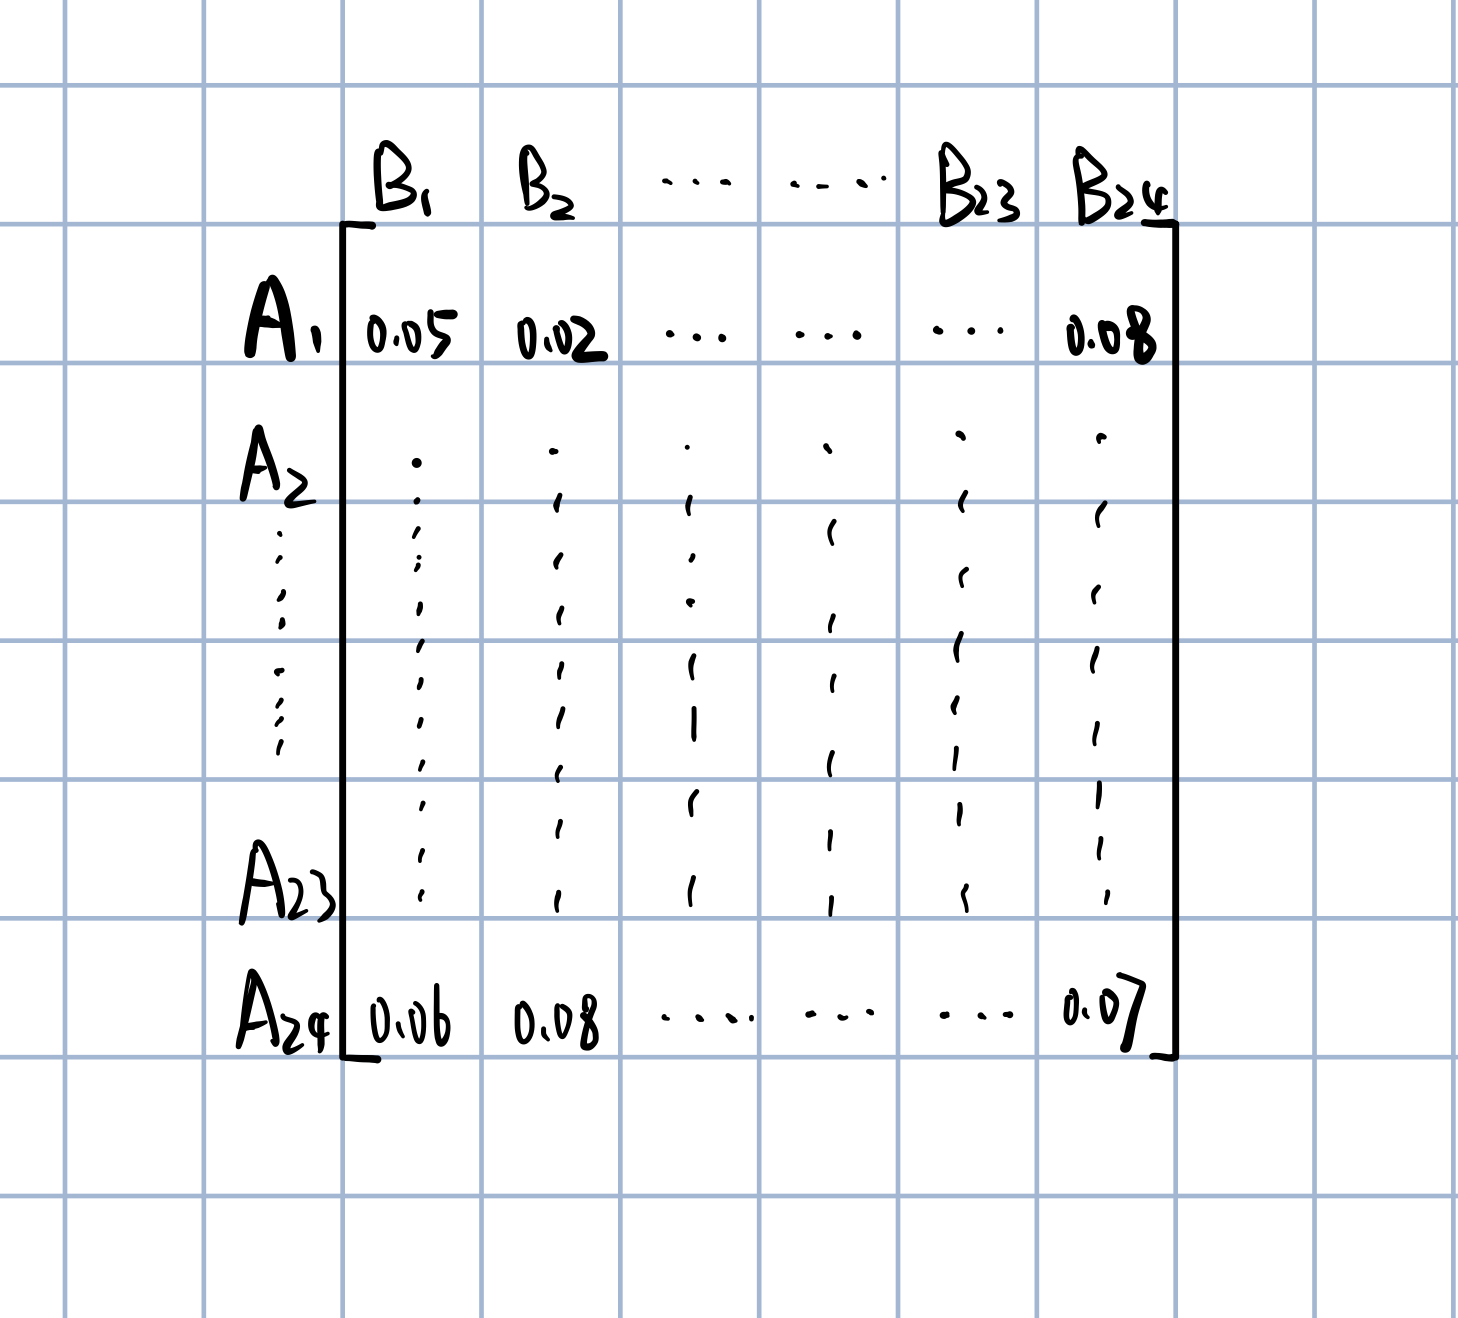 B₁ B₂ ... .... B₂₃ B₂₄
A₁ 0.05 0.02 ... ... ... 0.08
A₂
A₂₃
A₂₄ 0.06 0.08 .... ... ... 0.07